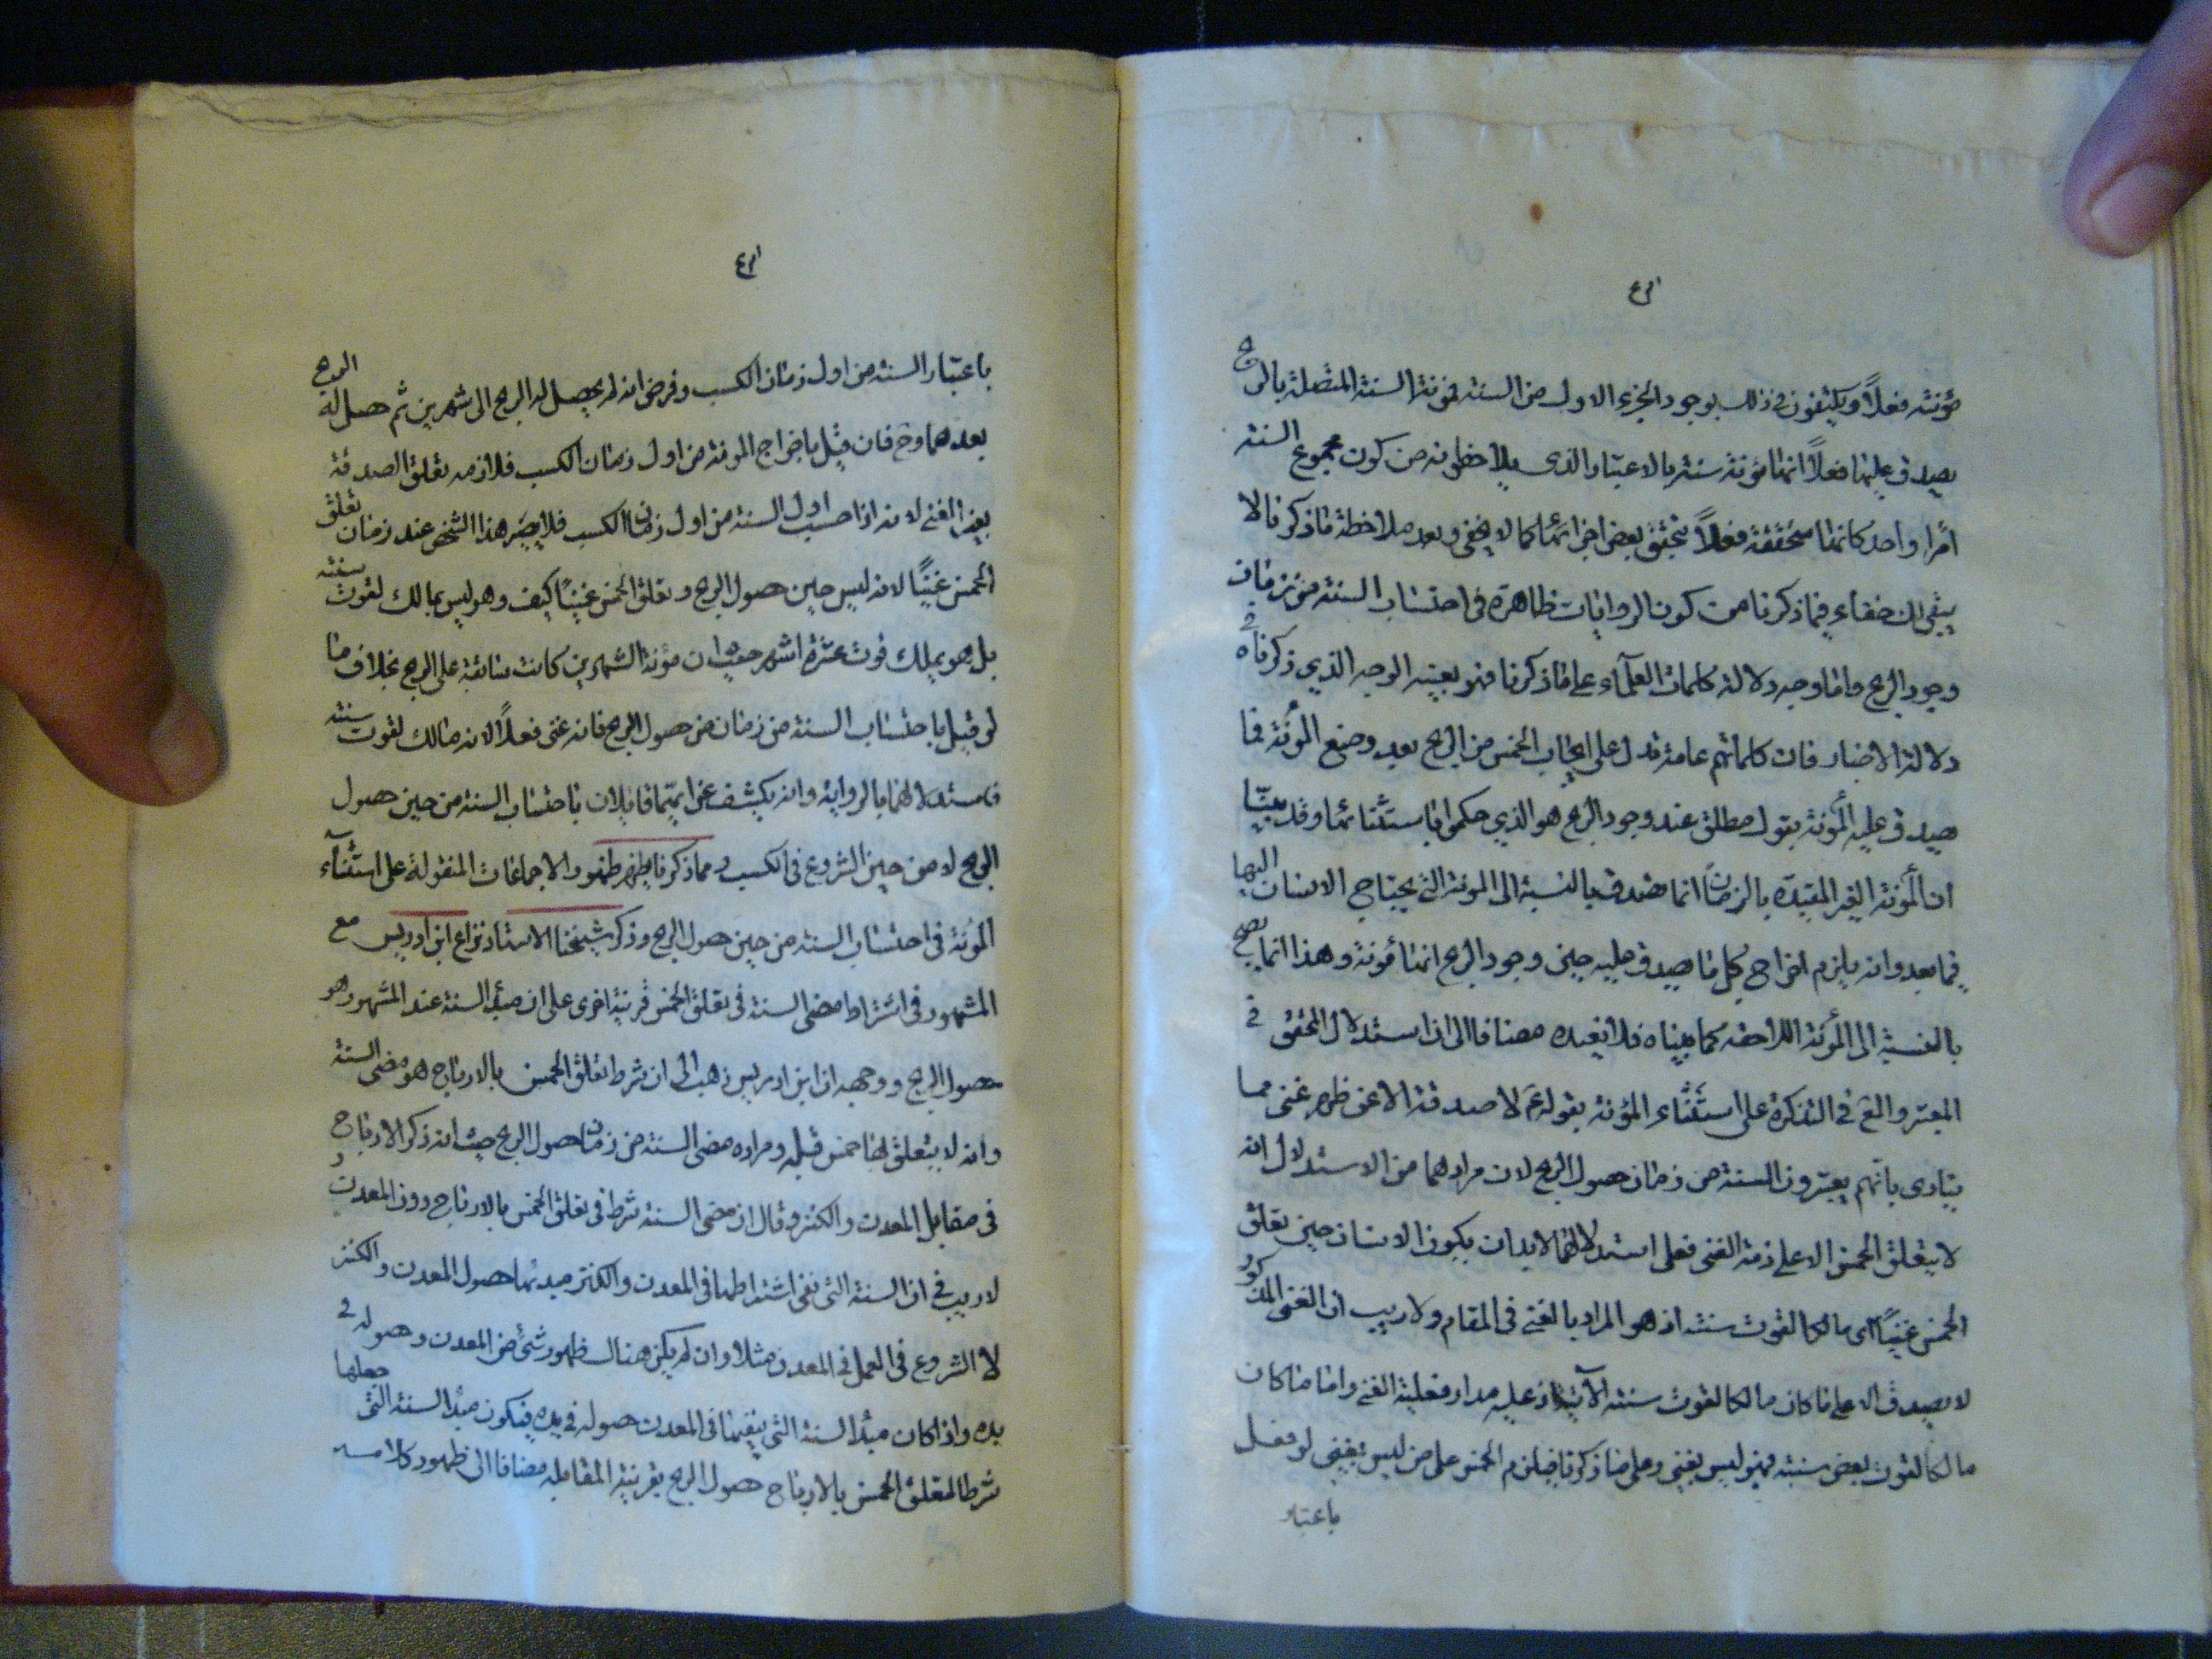 مؤنته فعلاً ويكتفون في ذلك بوجود الجزء الاول من السنة فمؤنة السنة المتصلة بالربح
يصدق عليها فعلاً انها مؤنة سنته بالاعتبار الذي يلاحظونه من كون مجموع السنة
امرا واحد كانها متحققة فعلاً بتحقق بعض اجزائها كما لا يخفى وبعد ملاحظة ما ذكرنا لا
يبقى لك خفاء فيما ذكرنا من كون الروايات ظاهرة في احتساب السنة من زمان
وجود الربح واما وجه دلالة كلمات العلمآء على ما ذكرنا فهو بعينه الوجه الذي ذكرناه في
دلالة الاخبار فان كلماتهم عامة تدل على ايجاب الخمس من الربح بعد وضع المؤنة فما
يصدق عليه المؤنة بقول مطلق عند وجود الربح هو الذي حكموا باستثنائها وقد بينا
ان المؤنة الغير المقيدة بالزمان انما تصدق بالنسبة الى المؤنة التي يحتاج الانسان اليها
فيما بعد وانه يلزم اخراج كل ما يصدق عليه حين وجود الربح انها مؤنة وهذا انما يصح
بالنسبة الى المؤنة اللاحقة كما بيناه فلا نعيده مضافا الى ان استدلال المحقق في
المعتبر والعلامة في التذكرة على استثناء المؤنة بقوله ع لا صدقة الا عن ظهر غنى مما
ينادى بانهم يعتبرون السنة من زمان حصول الربح لان مرادهما من الاستدلال انه
لا يتعلق الخمس الا على ذمة الغنى فعلى استدلالهما لا بد ان يكون الانسان حين تعلق
الخمس غنياً اى مالكا لقوت سنته اذ هو المراد بالغنى في المقام ولا ريب ان الغنى المذكور
لا يصدق الا على ما كان مالكا لقوت سنته الآتية اذ عليه مدار فعلية الغنى واما ما كان
مالكا لقوت بعض سنته فهو ليس بغنى وعلى ما ذكرنا فيلزم الخمس على من ليس بغنى لو فعل
باعتبار
باعتبار السنة من اول زمان الكسب وفرض انه لم يحصل له الربح الى شهرين ثم حصل له الربح
بعدهما وح فان قيل باخراج المؤنة من اول زمان الكسب فلازمه تعلق الصدقة
بغير الغنى لانه اذا حسب اول السنة من اول زمان الكسب فلا يصير هذا الشخص عند زمان تعلق
الخمس غنياً لانه ليس حين حصول الربح وتعلق الخمس غنيًا كيف وهو ليس بمالك لقوت سنته
بل هو يملك قوت عشرة اشهر حيث ان مؤنة الشهرين كانت سابقة على الربح بخلاف ما
لو قيل باحتساب السنة من زمان من حصول الربح فانه غنى فعلاً لانه مالك لقوت سنته
فاستدلالهما بالرواية وانه يكشف عن انهما قايلان باحتساب السنة من حين حصول
الربح لا من حين الشروع في الكسب ومما ذكرنا يظهر ظهور الاجماعات المنقولة على استثنآء
المؤنة في احتساب السنة من حين حصول الربح وذكر شيخنا الاستاد نزاع ابن ادريس مع
المشهور في اشتراط مضى السنة في تعلق الخمس قرينة اخرى على ان مبدأ السنة عند المشهور هو
حصول الربح ووجهه ان ابن ادريس ذهب الى ان شرط تعلق الخمس بالارباح هو مضى السنة
وانه لا يتعلق لها خمس قبله ومراده مضى السنة من زمان حصول الربح حيث انه ذكر الارباح
في مقابل المعدن والكنز وقال ان مضى السنة شرط في تعلق الخمس بالارباح دون المعدن و
لا ريب في ان السنة التي نفى اشتراطها في المعدن والكنز مبدئها حصول المعدن والكنز
لا الشروع في العمل في المعدن مثلا وان لم يكن هناك ظهور شئ من المعدن وحصوله في
يده واذا كان مبدأ السنة التي ينفيها في المعدن حصوله في يده فيكون مبدأ السنة التي جعلها
شرطا لتعلق الخمس بالارباح حصول الربح بقرينة المقابلة مضافا الى ظهور كلامه